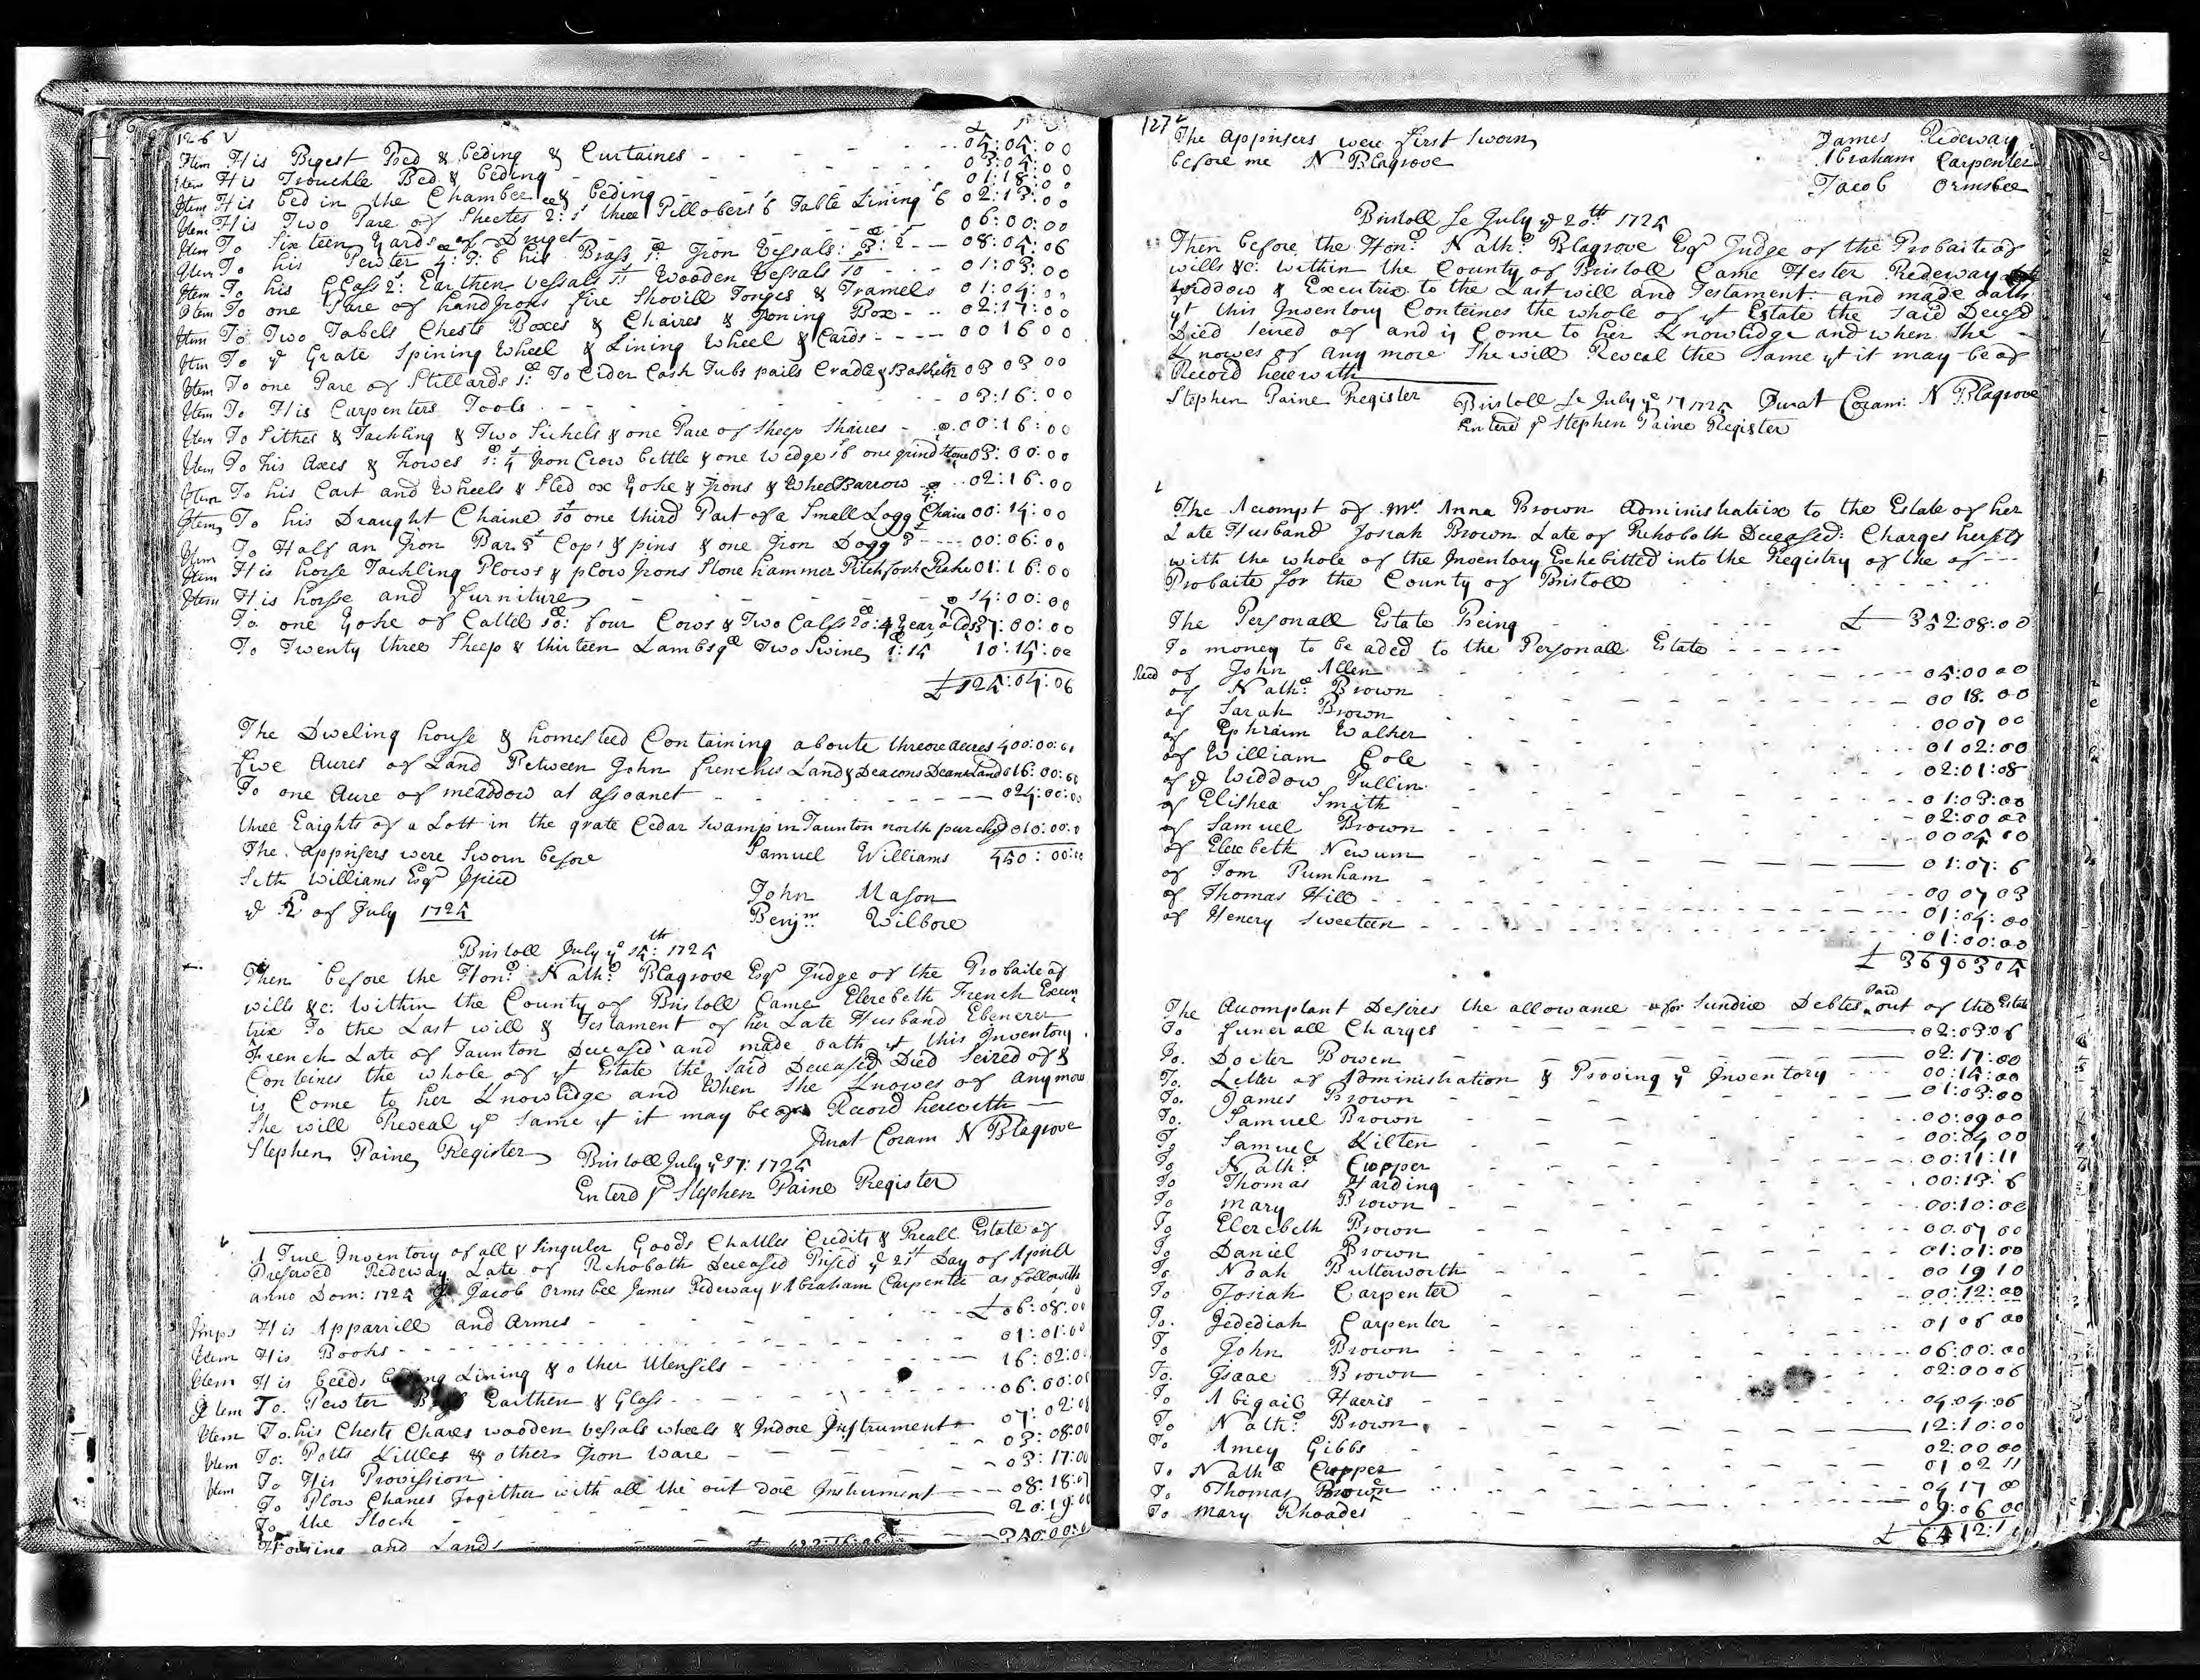 126
Item His Bigest Bed & beding & Curtaines - - - 05:05:00
Item His Trouckle Bed & beding - - - 03:05:00
Item His bed in the Chamber & beding - - - 01:18:00
Item His Two Pare of Sheetes 2: three Pillobers 6 Table Lining 6 02:13:00
Item To Sixteen Yards of Druget - - - 06:00:00
Item To his Pewter 4:3:6 his Brass Iron vessals - - 08:05:06
Item To his Glass 2: Earthen vessals Wooden vessals 10 - - - 01:03:00
Item To one Pare of handirons fire Shovill Tonges & Tramels 01:04:00
Item To Two Tabels Chests Boxes & Chaires & Ioning Box - - 02:17:00
Item To ye Grate Spining Wheel & Lining Wheel & Cards - - - 00 16 00
Item To one Pare of Stillards To Cider Cash Tubs pails Cradle & Baskets 03 03 00
Item To His Carpenters Tools - - - 03:16:00
Item To Sithes & Tackling & Two Sickels & one Pare of Sheep Shaires - 00:16:00
Item To his Axes & howes Iron Crow bettle & one Wedge one grind stone 03:00:00
Item To his Cart and Wheels & Sled ox Yoke & Irons & Wheel Barrow 02:16:00
Item To his Draught Chaine one third Part of a Small Logg Chain 00:14:00
Item To Half an Iron Bar Cops & pins & one Iron Dogg - - - 00:06:00
Item His horse Tackling Plows & plow Irons Stone hammer Pitchfork Rake 01:16:00
Item His horse and furniture - - - 14:00:00
To one Yoke of Cattel four Cows & Two Calfs 4 Year olds 37:00:00
To Twenty three Sheep & thirteen Lambs Two Swine 10:15:00
£ 125:04:06
The Dweling house & homesteed Containing aboute three acres 400:00:00
five Acres of Land Between John frenches Land & Deacons Deans Land 016:00:00
To one Acre of meaddow at assoanet - - - 024:00:00
three Eaights of a Lott in the grate Cedar Swamp in Taunton north purchis 010:00:0
The apprisers were Sworn before Samuel Williams 450:00:00
Seth Williams Esqr Jpice John Mason
ye 2d of July 1725 Benjm Wilbore
Bristoll July ye 15th: 1725
Then before the Hond Nathll Blagrove Esqr Judge of the Probaite of
wills &c: Within the County of Bristoll Came Elezebeth French Execu
trix To the Last will & Testament of her Late Husband Ebenezer
French Late of Taunton Deceased and made oath yt this Inventory
Conteines the whole of yt Estate the Said Deceased Died Seized of &
is Come to her Knowlidge and When She Knowes of any more
She will Reveal ye Same yt it may be of Record herewith
Stephen Paine Register Jurat Coram N Blagrove
Bristoll July ye 17: 1725
Enterd pr Stephen Paine Register
A True Inventory of all & Singuler Goods Chattles Credits & Reall Estate of
Preserved Redeway Late of Rehoboth Deceased Prised ye 21st Day of Aprill
anno Dom: 1725 Jacob Ormsbee James Redeway & Abraham Carpenter as followith
Imps His Apparrill and Armes - - - £ 06:08:00
Item His Books - - - 01:01:00
Item His beeds Lining & other Utensils - - - 16:02:0
Item To. Pewter Earthen & Glass - - - 06:00:00
Item To. his Chests Chares wooden vessals wheels & Indore Instrument 07:02:0
Item To: Potts Kittles & other Iron Ware - - - 03:08:00
Item To His Provission - - - 03:17:00
To Plow Chanes Together with all the out dore Instrument - - - 08:18:0
To the Stock - - - 20:19:00
Housing and Lands - - - 350:00:0
127
The Apprisers were first Sworn James Redeway
before me N Blagrove Abraham Carpenter
Jacob Ormsbee
Bristoll Sc July ye 20th 1725
Then before the Hond Nathll Blagrove Esqr Judge of the Probaite of
wills &c: Within the County of Bristoll Came Hester Redeway
widdow & Executrix to the Last will and Testament and made oath
yt this Inventory Conteines the whole of yt Estate the Said Decesd
Died Seized of and is Come to her Knowlidge and when She
Knowes of any more She will Reveal the Same yt it may be of
Record herewith
Stephen Paine Register Jurat Coram: N Blagrove
Bristoll Sc July ye 17 1725
Enterd pr Stephen Paine Register
The Accompt of Mrs Anna Brown Administratrix to the Estate of her
Late Husband Josiah Brown Late of Rehoboth Deceased: Charges herself
with the whole of the Inventory Exhebitted into the Registry of the of
Probaite for the County of Bristoll
The Personall Estate Being - - - £ 352:08:00
To money to be aded to the Personall Estate - - -
Recd of John Allen - - - 05:00 00
of Nathll Brown - - - 00 18 00
of Sarah Brown - - - 00 07 00
of Ephraim Walker - - - 01 02:00
of William Cole - - - 02:01:08
of ye Widdow Pullin - - - 01:03:00
of Elishea Smith - - - 02:00 00
of Samuel Brown - - - 00 05 00
of Elezebeth Newum - - - 01:07:6
of Tom Pumham - - - 00 07 03
of Thomas Hill - - - 01:04:00
of Henery Sweeteen - - - 01:00:00
£ 369 03 05
The Acomptant Desires the allowance for Sundrie Debtes Paid out of the Estate
To funerall Charges - - - 02:03:06
To. Docter Bowen - - - 02:17:00
To. Letter of Administration & Proving ye Inventory - - - 00:15:00
To. James Brown - - - 01:03:00
To. Samuel Brown - - - 00:09 00
To Samuel Kilten - - - 00:04 00
To Nathll Cooper - - - 00:11:11
To Thomas Harding - - - 00:13:6
To Mary Brown - - - 00:10:00
To Elezebeth Brown - - - 00:07 00
To Daniel Brown - - - 01:01:00
To Noah Butterworth - - - 00 19 10
To Josiah Carpenter - - - 00:12:00
To. Jedediah Carpenter - - - 01 06 00
To John Brown - - - 06:00:00
To. Isaac Brown - - - 02:00 06
To Abigail Harris - - - 04:04:06
To Nathll Brown - - - 12:10:00
To Amey Gibbs - - - 02:00 00
To Nathll Cooper - - - 01 02 11
To Thomas Brown - - - 04 17 0
To Mary Rhoades - - - 09:06 00